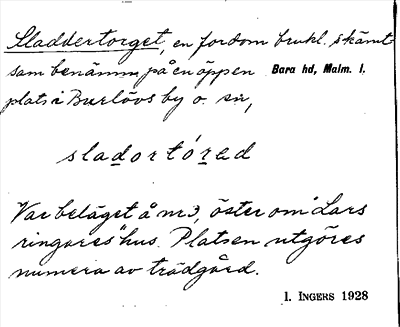 Sladdertorget, en fordom brukl. skämt-
sam benämn. på en öppen Bara hd, Malm. l.
plats i Burlövs by o. sn,
sladortórad
Var beläget å nr 3, öster om "Lars
ringares" hus. Platsen utgöres
numera av trädgård.
I. INGERS 1928